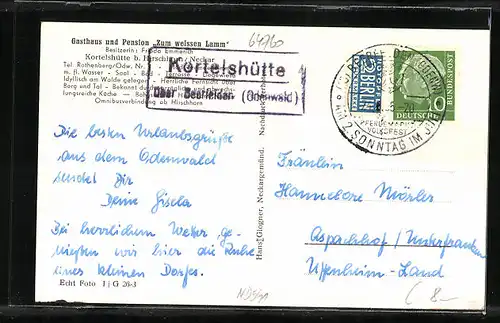 64760
Gasthaus und Pension „Zum weissen Lamm"
Besitzerin: Frieda Emmerich
Kortelshütte b. Hirschhorn / Neckar
Tel. Rothenberg/Odw. Nr.
m. fl. Wasser - Saal - Bad - Terrasse - Liegewiese
Idyllisch am Walde gelegen - Herrliche Fernsicht über
Berg und Tal - Bekannt durch
Omnibusverbindung ab Hirschhorn
Kortelshütte
über Beerfelden (Odenwald)
2 BERLIN
DEUTSCHE BUNDESPOST
10
PFERDE
VOLKSFEST
2. SONNTAG IM JULI
Die besten Urlaubsgrüße
aus dem Odenwald
sendet Dir
Deine Gisela
Bei herrlichem Wetter ge-
nießen wir hier die Ruhe
eines kleinen Dorfes.
Echt Foto I j G 26-3
Hans Glogner, Neckargemünd.
Fräulein
Hannelore Mösler
Aspachhof / Unterfranken
Uffenheim-Land
(8-